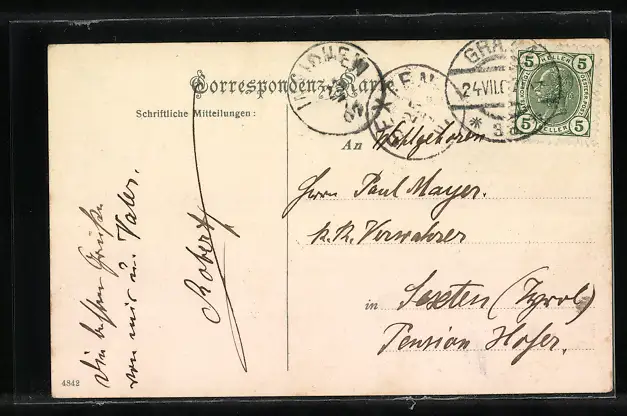 Correspondenz-Karte
Schriftliche Mitteilungen:
Die besten Grüße
von mir u. Vater.
Robert
An Wohlgeboren
Herrn Paul Mayer.
k. k. Verwahrer
in Sexten (Tyrol)
Pension Hofer.
INNICHEN
SEXTEN
GRAZ
24 VII 07
5 HELLER 5
5 HELLER 5
4842